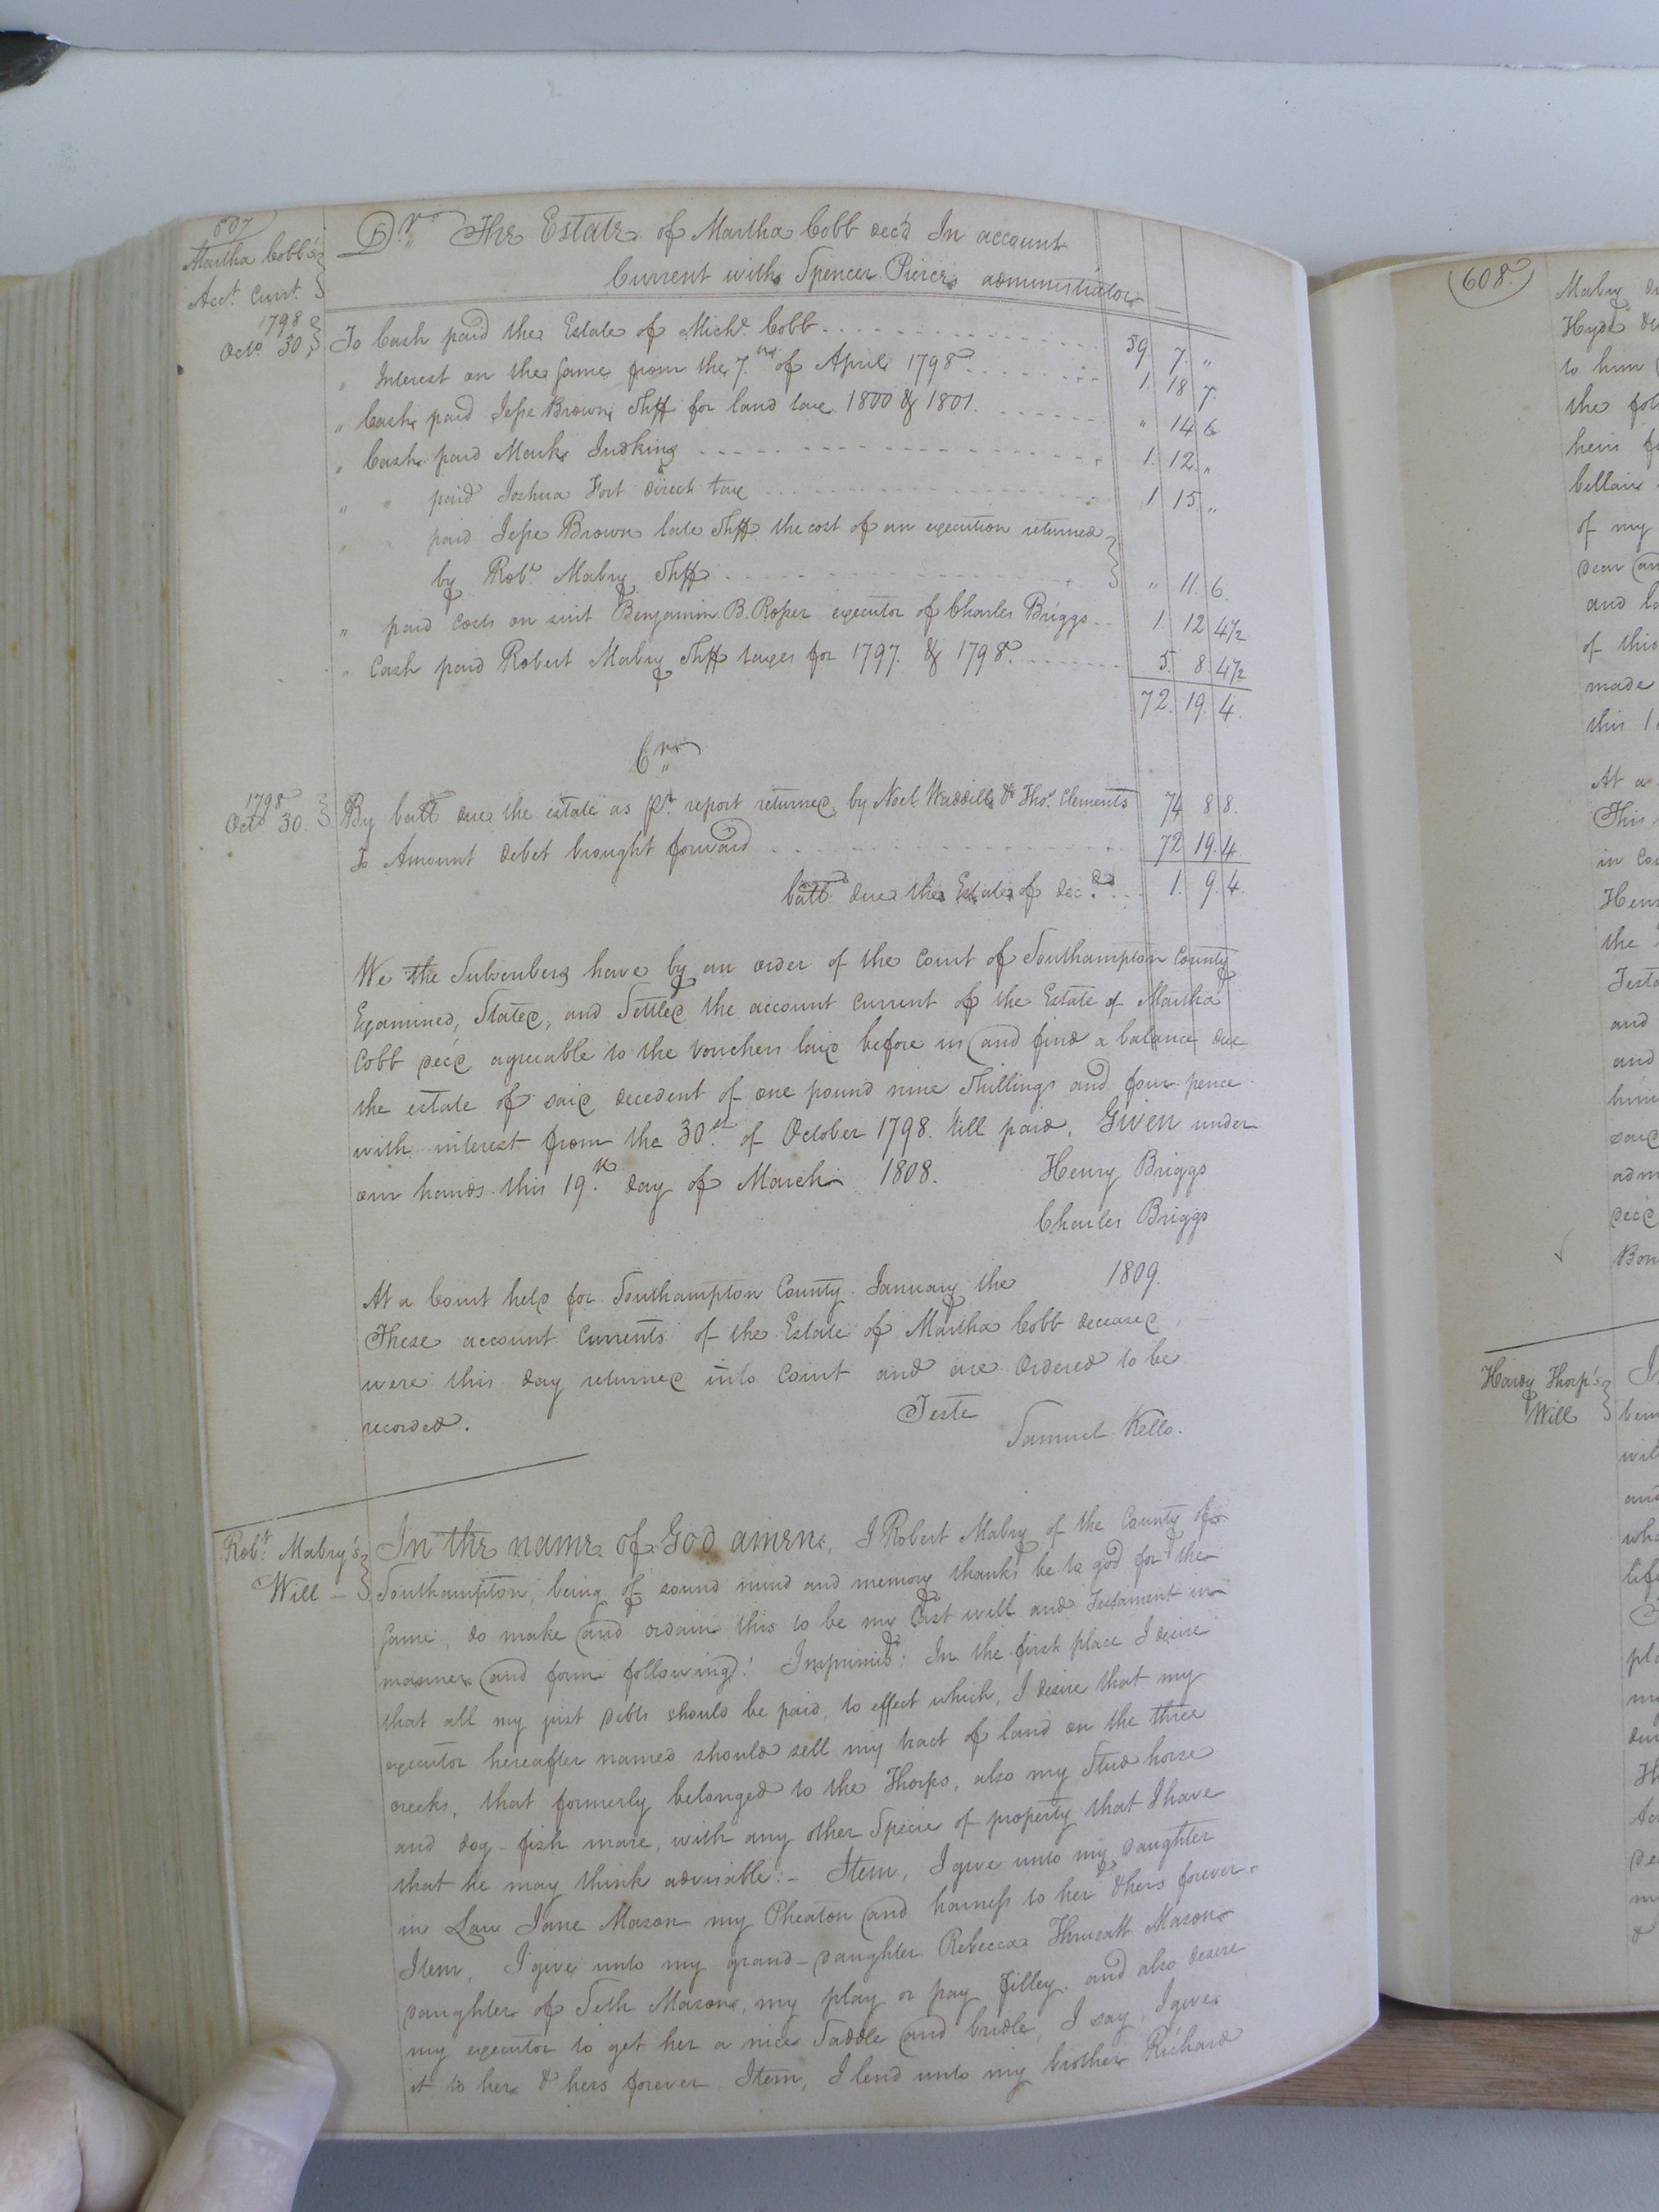 607
Martha Cobb's
Acct. Currt.
Dr. The Estate of Martha Cobb dec'd In account
Current with Spencer Pierce administrator
1798
Octo. 30
To Cash paid the Estate of Michl. Cobb 59. 7. "
" Interest on the same from the 7.th of April 1798 1. 18 7.
" Cash paid Jesse Brown Shff for land tax 1800 & 1801. " 14 6
" Cash paid Mark Judkins 1. 12. "
" " paid Joshua Fort direct tax 1 15. "
" " paid Jesse Brown late Shff the cost of an execution returned
by Robt. Mabry Shff " 11. 6.
" paid Costs on suit Benjamin B. Roper executor of Charles Briggs 1. 12 4½
" Cash paid Robert Mabry Shff taxes for 1797. & 1798. 5. 8. 4½
72. 19. 4.
Cr.
1798
Octo. 30.
By ball due the estate as pr. report returned by Noel Waddill & Thos. Clements 74 8 8.
To Amount debet brought forward 72 19. 4.
ball due the Estate of decd. 1. 9. 4.
We the Subscribers have by an order of the Court of Southampton County
Examined, Stated, and Settled the account Current of the Estate of Martha
Cobb dec'd agreeable to the vouchers laid before us and find a balance due
the estate of said decedent of one pound nine Shillings and four pence
with interest from the 30.th of October 1798. till paid. Given under
our hands this 19.th day of March 1808. Henry Briggs
Charles Briggs
At a Court held for Southampton County January the 1809.
These account Currents of the Estate of Martha Cobb deceased
were this day returned into Court and are Ordered to be
recorded. Teste
Samuel Kello.
Robt. Mabry's
Will
In the name of God amen, I Robert Mabry of the County of
Southampton, being of sound mind and memory thanks be to god for the
same, do make and ordain this to be my Last will and Testament in
manner and form following: Imprimis: In the first place I desire
that all my just debts should be paid, to effect which, I desire that my
executor hereafter named should sell my tract of land on the three
creeks, that formerly belonged to the Thorps, also my Stud horse
and dog-fish mare, with any other Specie of property that I have
that he may think advisable:- Item, I give unto my daughter
in Law Jane Mason my Pheaton and harness to her & hers forever.
Item, I give unto my grand-daughter Rebecca Threeatt Mason
daughter of Seth Mason, my play or pay filley, and also desire
my executor to get her a nice Saddle and bridle, I say, I give
it to her & hers forever Item, I lend unto my brother Richard
608.
Mabry
to him
the
heirs
of my
dear
and
of this
made
this
At a
This
in
the
and
and
Hardy Thorp's
Will